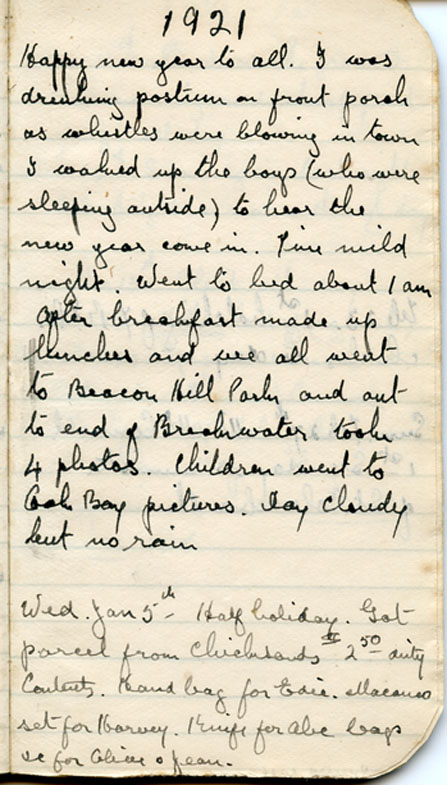 1921
Happy new year to all. I was
drinking postum on front porch
as whistles were blowing in town
I walked up the boys (who were
sleeping outside) to hear the
new year come in. Fine mild
night. Went to bed about 1 am
After breakfast made up
lunches and we all went
to Beacon Hill Park and out
to end of Breakwater took
4 photos. Children went to
Oak Bay pictures. Day cloudy
but no rain
Wed. Jan 5th Half holiday. Got
parcel from Chicksands $2.50 duty
Contents. Hand bag for Edie. Meccano
set for Harvey. Knife for Abe bags
&c for Olive & Jean.